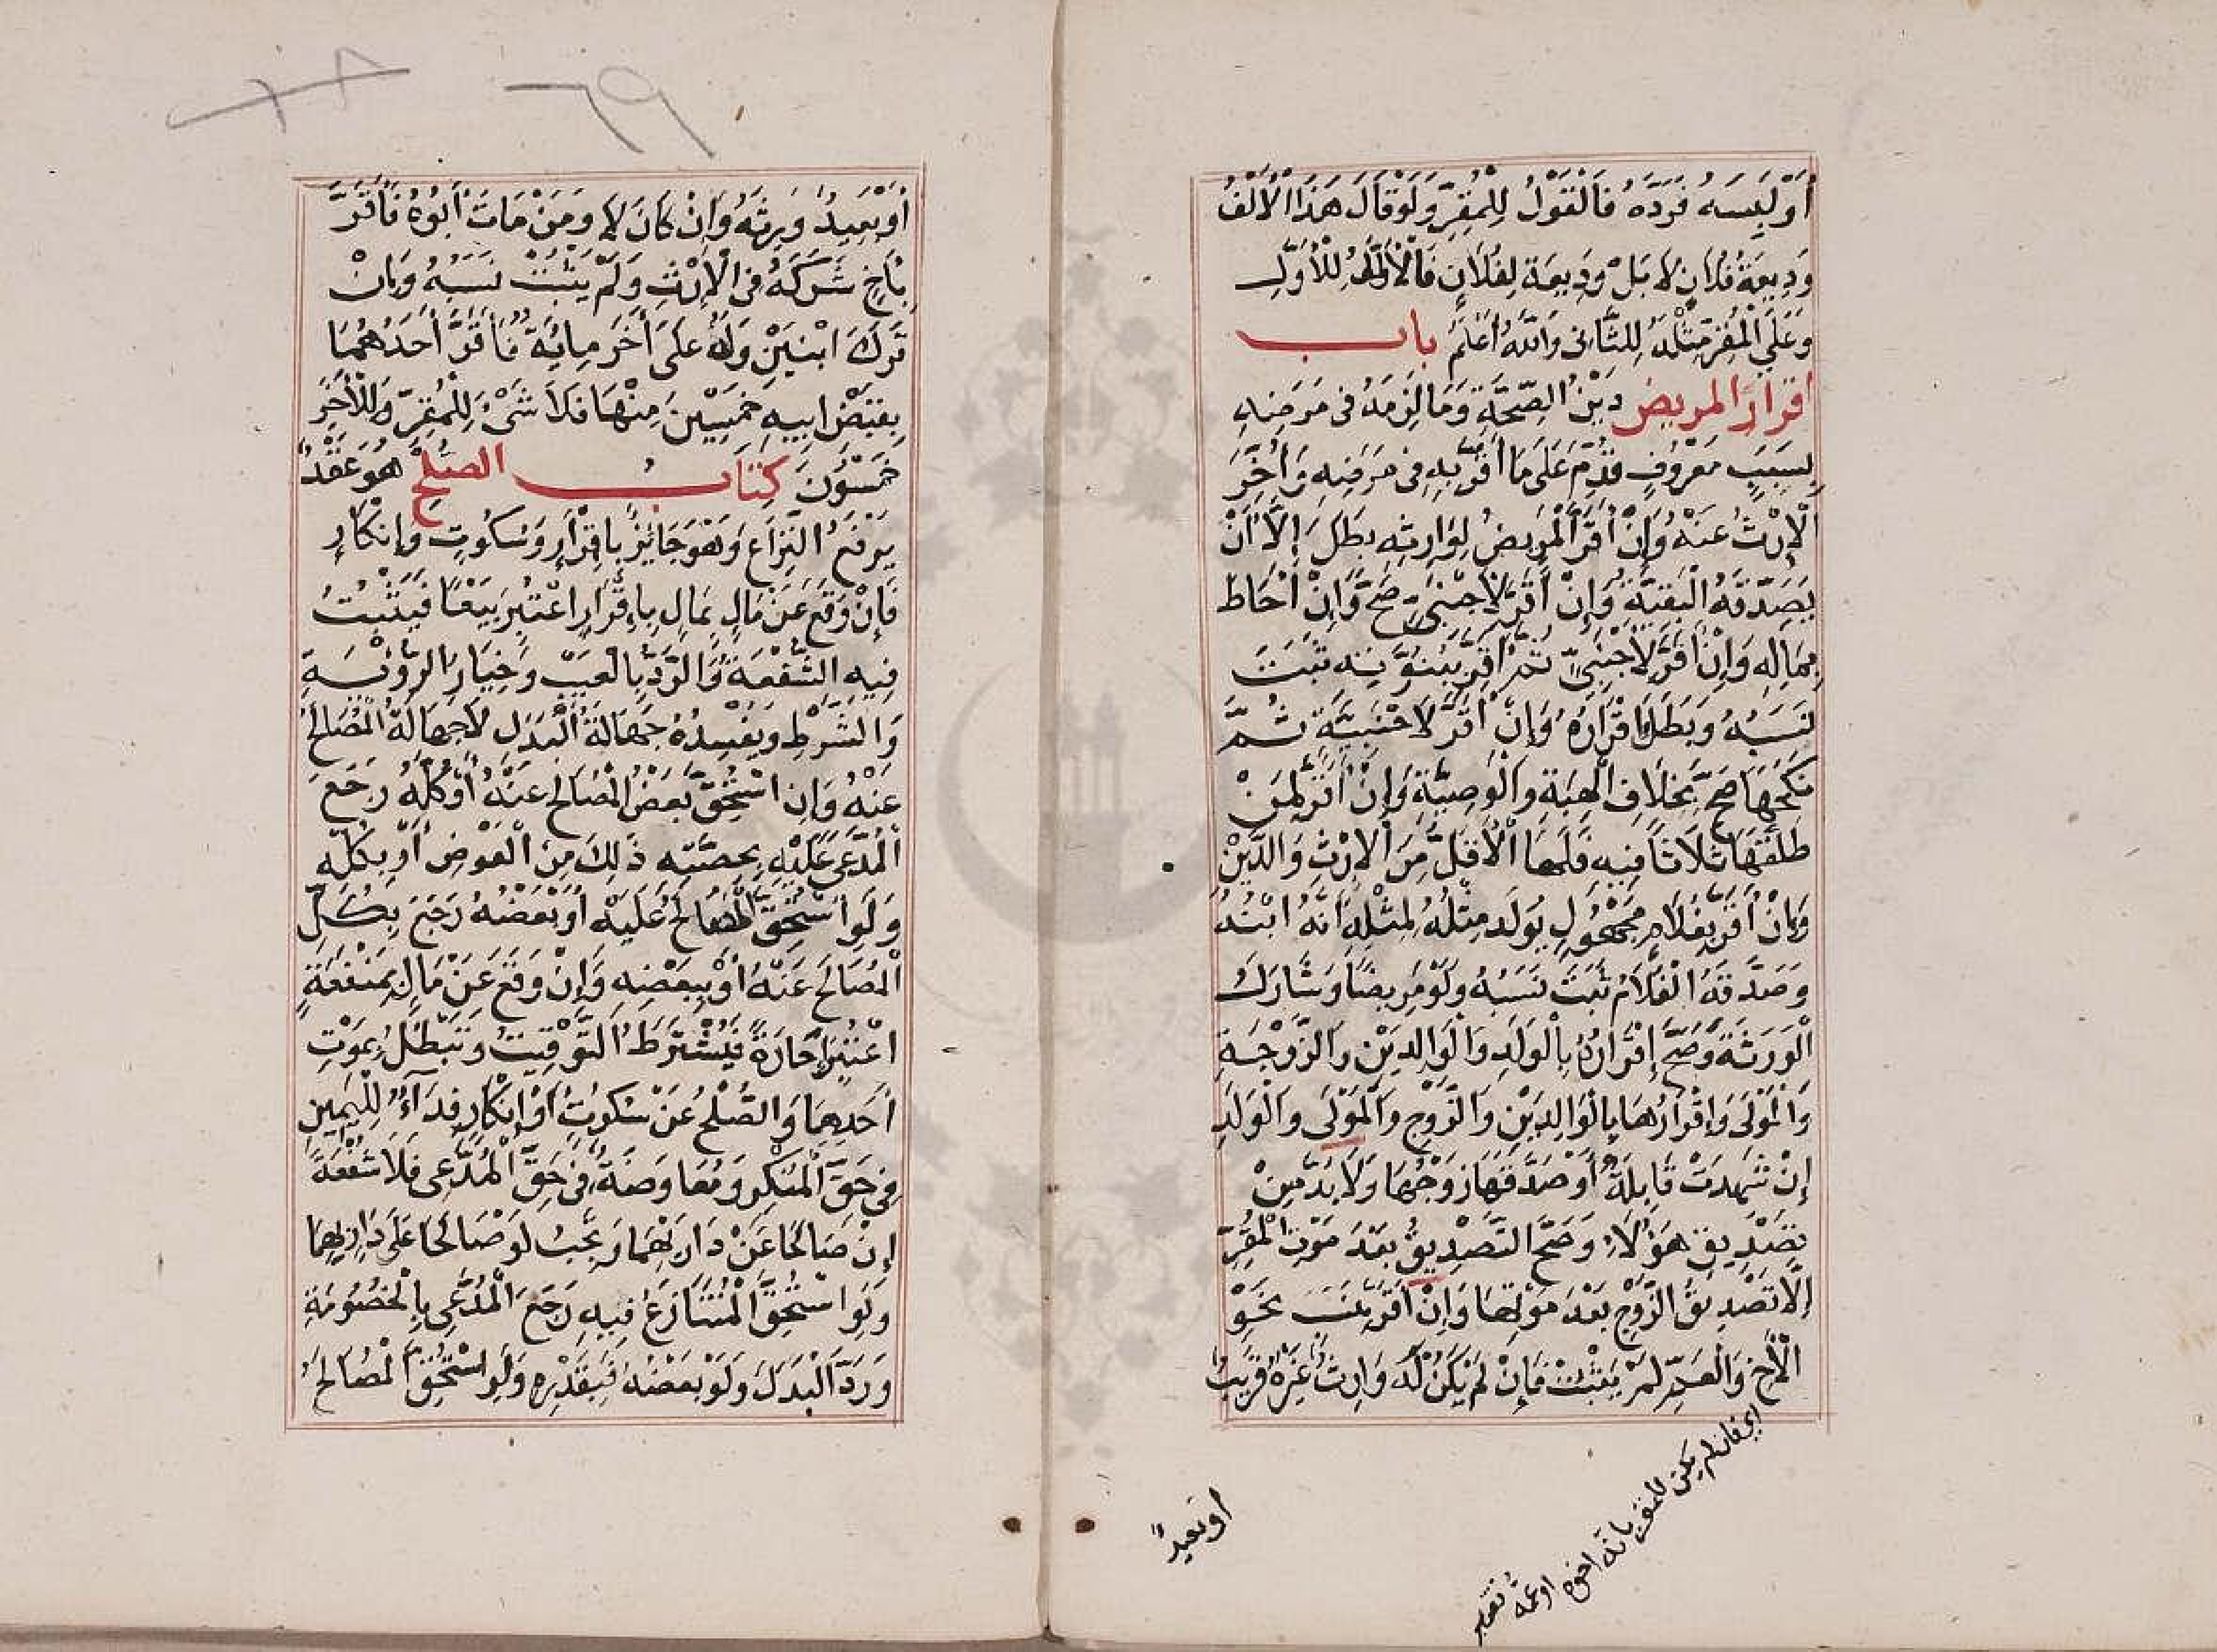 أَوْ لَبِسَهُ فَرَدَّهُ فَالْقَوْلُ لِلْمُقِرِّ وَلَوْ قَالَ هَذَا الْأَلْفُ
وَدِيعَةُ فُلَانٍ لَا بَلْ وَدِيعَة لِفُلَانٍ فَالْأَلْفُ لِلْأَوَّلِ
وَعَلَى الْمُقِرِّ مِثْلُهُ لِلثَّانِى وَاللَّهُ أَعْلَمُ باب
اقرار المريض دَيْنُ الصِّحَّةِ وَمَا لَزِمَهُ فى مَرَضِهِ
بِسَبَبٍ مَعْرُوفٍ قُدِّمَ عَلَى مَا أَقَرَّ بِهِ فى مَرَضِهِ وَأُخِّرَ
الْإِرْثُ عَنْهُ وَإِنْ أَقَرَّ الْمَرِيضُ لِوَارِثِهِ بَطَلَ إِلَّا أَنْ
يُصَدِّقَهُ الْبَقِيَّةُ وَإِنْ أَقَرَّ لِأَجْنَبِىٍّ صَحَّ وَإِنْ أَحَاطَ
بِمَالِهِ وَإِنْ أَقَرَّ لِأَجْنَبِىٍّ ثُمَّ أَقَرَّ بِبُنُوَّتِهِ ثَبَتَ
نَسَبُهُ وَبَطَلَ إقْرَارُهُ وَإِنْ أَقَرَّ لِأَجْنَبِيَّةٍ ثُمَّ
نَكَحَهَا صَحَّ بِخِلَافِ الْهِبَةِ وَالْوَصِيَّةِ وَإِنْ أَقَرَّ لِمَنْ
طَلَّقَهَا ثَلَاثًا فِيهِ فَلَهَا الْأَقَلُّ مِنَ الْإِرْثِ وَالدَّيْنِ
وَإِنْ أَقَرَّ بِغُلَامٍ مَجْهُولٍ يُولَدُ مِثْلُهُ لِمِثْلِهِ أَنَّهُ ابْنُهُ
وَصَدَّقَهُ الْغُلَامُ ثَبَتَ نَسَبُهُ وَلَوْ مَرِيضًا وَشَارَكَ
الْوَرَثَةَ وَصَحَّ إِقْرَارُهُ بِالْوَلَدِ وَالْوَالِدَيْنِ وَالزَّوْجَةِ
وَالْمَوْلَى وَإِقْرَارُهَا بِالْوَالِدَيْنِ وَالزَّوْجِ وَالْمَوْلَى وَالْوَلَدِ
إِنْ شَهِدَتْ قَابِلَةٌ أَوْ صَدَّقَهَا زَوْجُهَا وَلَا بُدَّ مِنْ
تَصْدِيقِ هَؤُلَاءِ وَصَحَّ التَّصْدِيقُ بَعْدَ مَوْتِ الْمُقِرِّ
إِلَّا تَصْدِيقُ الزَّوْجِ بَعْدَ مَوْتِهَا وَإِنْ أَقَرَّ بِنَسَبٍ نَحْوِ
الْأَخِ وَالْعَمِّ لَمْ يَثْبُتْ فَإِنْ لَمْ يَكُنْ لَهُ وَارِثٌ غَيْرُهُ قَرِيبٌ
اى فان لم يكن للمقر بانه اخوه او عمه
او بعيدٌ
أَوْ بَعِيدٌ وَرِثَهُ وَإِنْ كَانَ لَا وَمَنْ مَاتَ أَبُوهُ فَأَقَرَّ
بِأَخٍ شَرَكَهُ فِى الْإِرْثِ وَلَمْ يَثْبُتْ نَسَبُهُ وَإِنْ
تَرَكَ ابْنَيْنِ وَلَهُ عَلَى آخَرَ مِائَةٌ فَأَقَرَّ أَحَدُهُمَا
بِقَبْضِ ابِيهِ خَمْسِينَ مِنْهَا فَلَا شَىْءَ لِلْمُقِرِّ وَلِلْآخَرِ
خَمْسُونَ كِتَاب الصلح هُوَ عَقْدٌ
يَرْفَعُ النِّزَاعَ وَهُوَ جَائِزٌ بِإِقْرَارٍ وَسُكُوتٍ وَإِنْكَارٍ
فَإِنْ وَقَعَ عَنْ مَالٍ بِمَالٍ بِإِقْرَارٍ اعْتُبِرَ بَيْعًا فَيَثْبُتُ
فِيهِ الشُّفْعَةُ وَالرَّدُّ بِالْعَيْبِ وَخِيَارُ الرُّؤْيَةِ
وَالشَّرْطِ وَيُفْسِدُهُ جَهَالَةُ الْبَدَلِ لَا جَهَالَةُ الْمُصَالَحِ
عَنْهُ وَإِنِ اسْتُحِقَّ بَعْضُ الْمُصَالَحِ عَنْهُ أَوْ كُلُّهُ رَجَعَ
الْمُدَّعَى عَلَيْهِ بِحِصَّتِهِ ذَلِكَ مِنَ الْعِوَضِ أَوْ بِكُلِّهِ
وَلَوِ اسْتُحِقَّ الْمُصَالَحُ عَلَيْهِ أَوْ بَعْضُهُ رَجَعَ بِكُلِّ
الْمُصَالَحِ عَنْهُ أَوْ بِبَعْضِهِ وَإِنْ وَقَعَ عَنْ مَالٍ بِمَنْفَعَةٍ
اعْتُبِرَ إِجَارَةً فَيُشْتَرَطُ التَّوْقِيتُ وَتَبْطُلُ بِمَوْتِ
أَحَدِهِمَا وَالصُّلْحُ عَنْ سُكُوتٍ أَوْ إِنْكَارٍ فِدَاءٌ لِلْيَمِينِ
فِى حَقِّ الْمُنْكِرِ وَمُعَاوَضَةٌ فِى حَقِّ الْمُدَّعِى فَلَا شُفْعَةَ
إِنْ صَالَحَا عَنْ دَارٍ بِهِمَا وَيَجِبُ لَوْ صَالَحَا عَلَى دَارٍ بِهِمَا
وَلَوِ اسْتُحِقَّ الْمُتَنَازَعُ فِيهِ رَجَعَ الْمُدَّعِى بِالْخُصُومَةِ
وَرَدَّ الْبَدَلَ وَلَوْ بَعْضُهُ فَبِقَدْرِهِ وَلَوِ اسْتُحِقَّ الْمُصَالَحُ